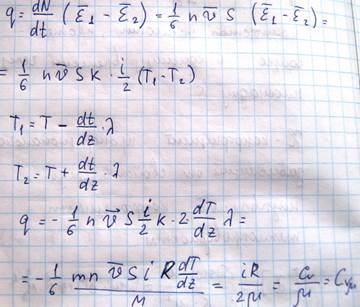 q = dN/dt (ε̄₁ − ε̄₂) = 1/6 n v̄ S (ε̄₁ − ε̄₂) =
= 1/6 n v̄ S k · i/2 (T₁ − T₂)
T₁ = T − dt/dz · λ
T₂ = T + dt/dz · λ
q = − 1/6 n v̄ S i/2 k · 2 dT/dz λ =
= − 1/6 mn v̄ S i R dT/dz / μ = iR/2μ = Cv/μ = Cуд